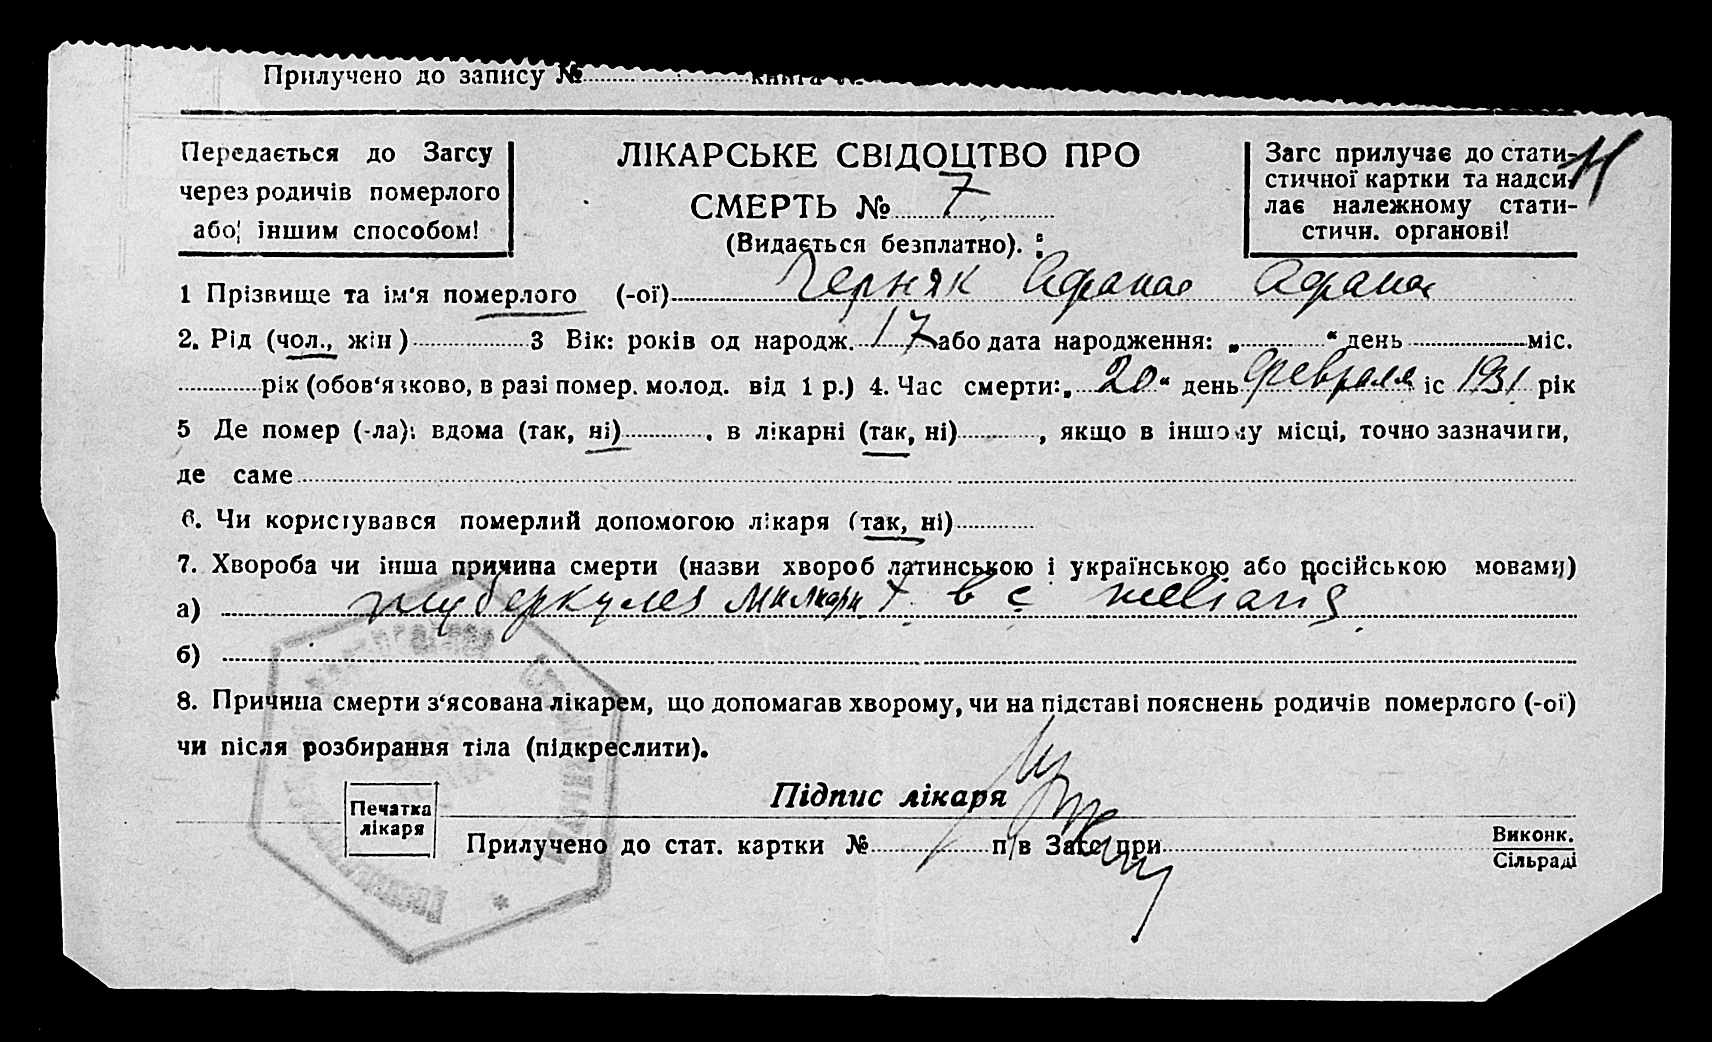 Прилучено до запису № книга
Передається до Загсу
через родичів померлого
або іншим способом!
ЛІКАРСЬКЕ СВІДОЦТВО ПРО
СМЕРТЬ № 7
(Видається безплатно).
Загс прилучає до стати-
стичної картки та надси-
лає належному стати-
стичн. органові!
11
1 Прізвище та ім'я померлого (-ої) Черняк Афанас Афанас
2. Рід (чол., жін) 3 Вік: років од народж. 17 або дата народження: „ “ день міс.
рік (обов'язково, в разі помер. молод. від 1 р.) 4. Час смерти: „ 20 “ день февраля іс 1931 рік
5 Де помер (-ла): вдома (так, ні) , в лікарні (так, ні) , якщо в іншому місці, точно зазначити,
де саме
6. Чи користувався померлий допомогою лікаря (так, ні)
7. Хвороба чи інша причина смерти (назви хвороб латинською і українською або російською мовами)
а) туберкулез милиари
б)
8. Причина смерти з'ясована лікарем, що допомагав хворому, чи на підставі пояснень родичів померлого (-ої)
чи після розбирання тіла (підкреслити).
Печатка
лікаря
Підпис лікаря
Прилучено до стат. картки № п/в Загс при
Виконк.
Сільраді